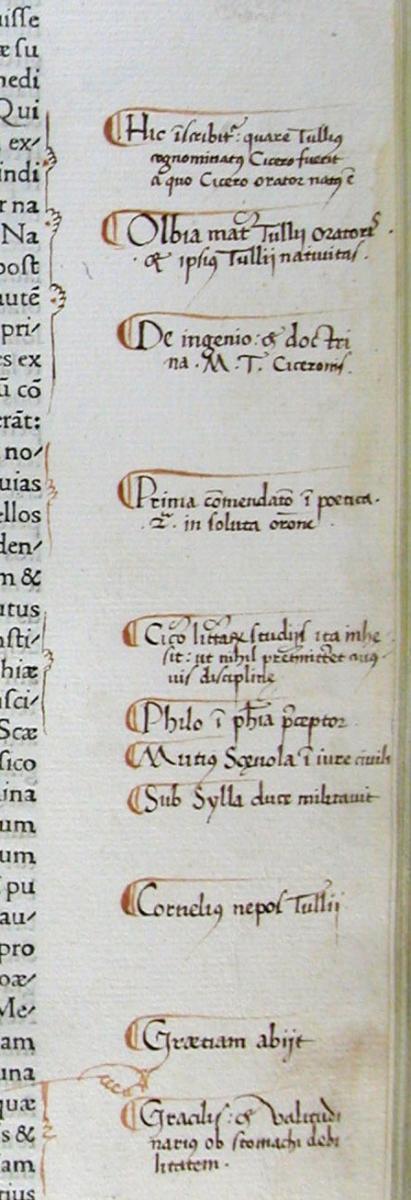 uisse
æ su
nedi
Qui
ex-
indi
r na
Na
post
autē
pri-
es ex
ū cō
erāt:
no-
uias
ellos
den-
m &
utus
nsti-
hiæ
nsci-
Scæ
sico
ina
um
um
pu
au-
pro
oæ-
Me-
am
una
quæ
s &
am
tius
Hic īscribit~: quare Tullius
cognominatus Cicero fuerit
a quo Cicero orator natus ē
Olbia mat~ Tullij oratoris .
. & ipsius Tullij nativitas .
De ingenio : & doctri
na . M . T . Ciceronis .
Prima cōmendatō ī poetica .
. & . in soluta orōne
Cicō litta℞ studijs ita inhe
sit : ut nihil
uis discipline
Philo ī phīa p̄ceptor
Mutius Scęuola ī iure civili
Sub Sylla duce militauit
Cornelius nepos Tullii
Græciam abijt
Gracilis : & Valitudi
narius ob stomachi debi
litatem .